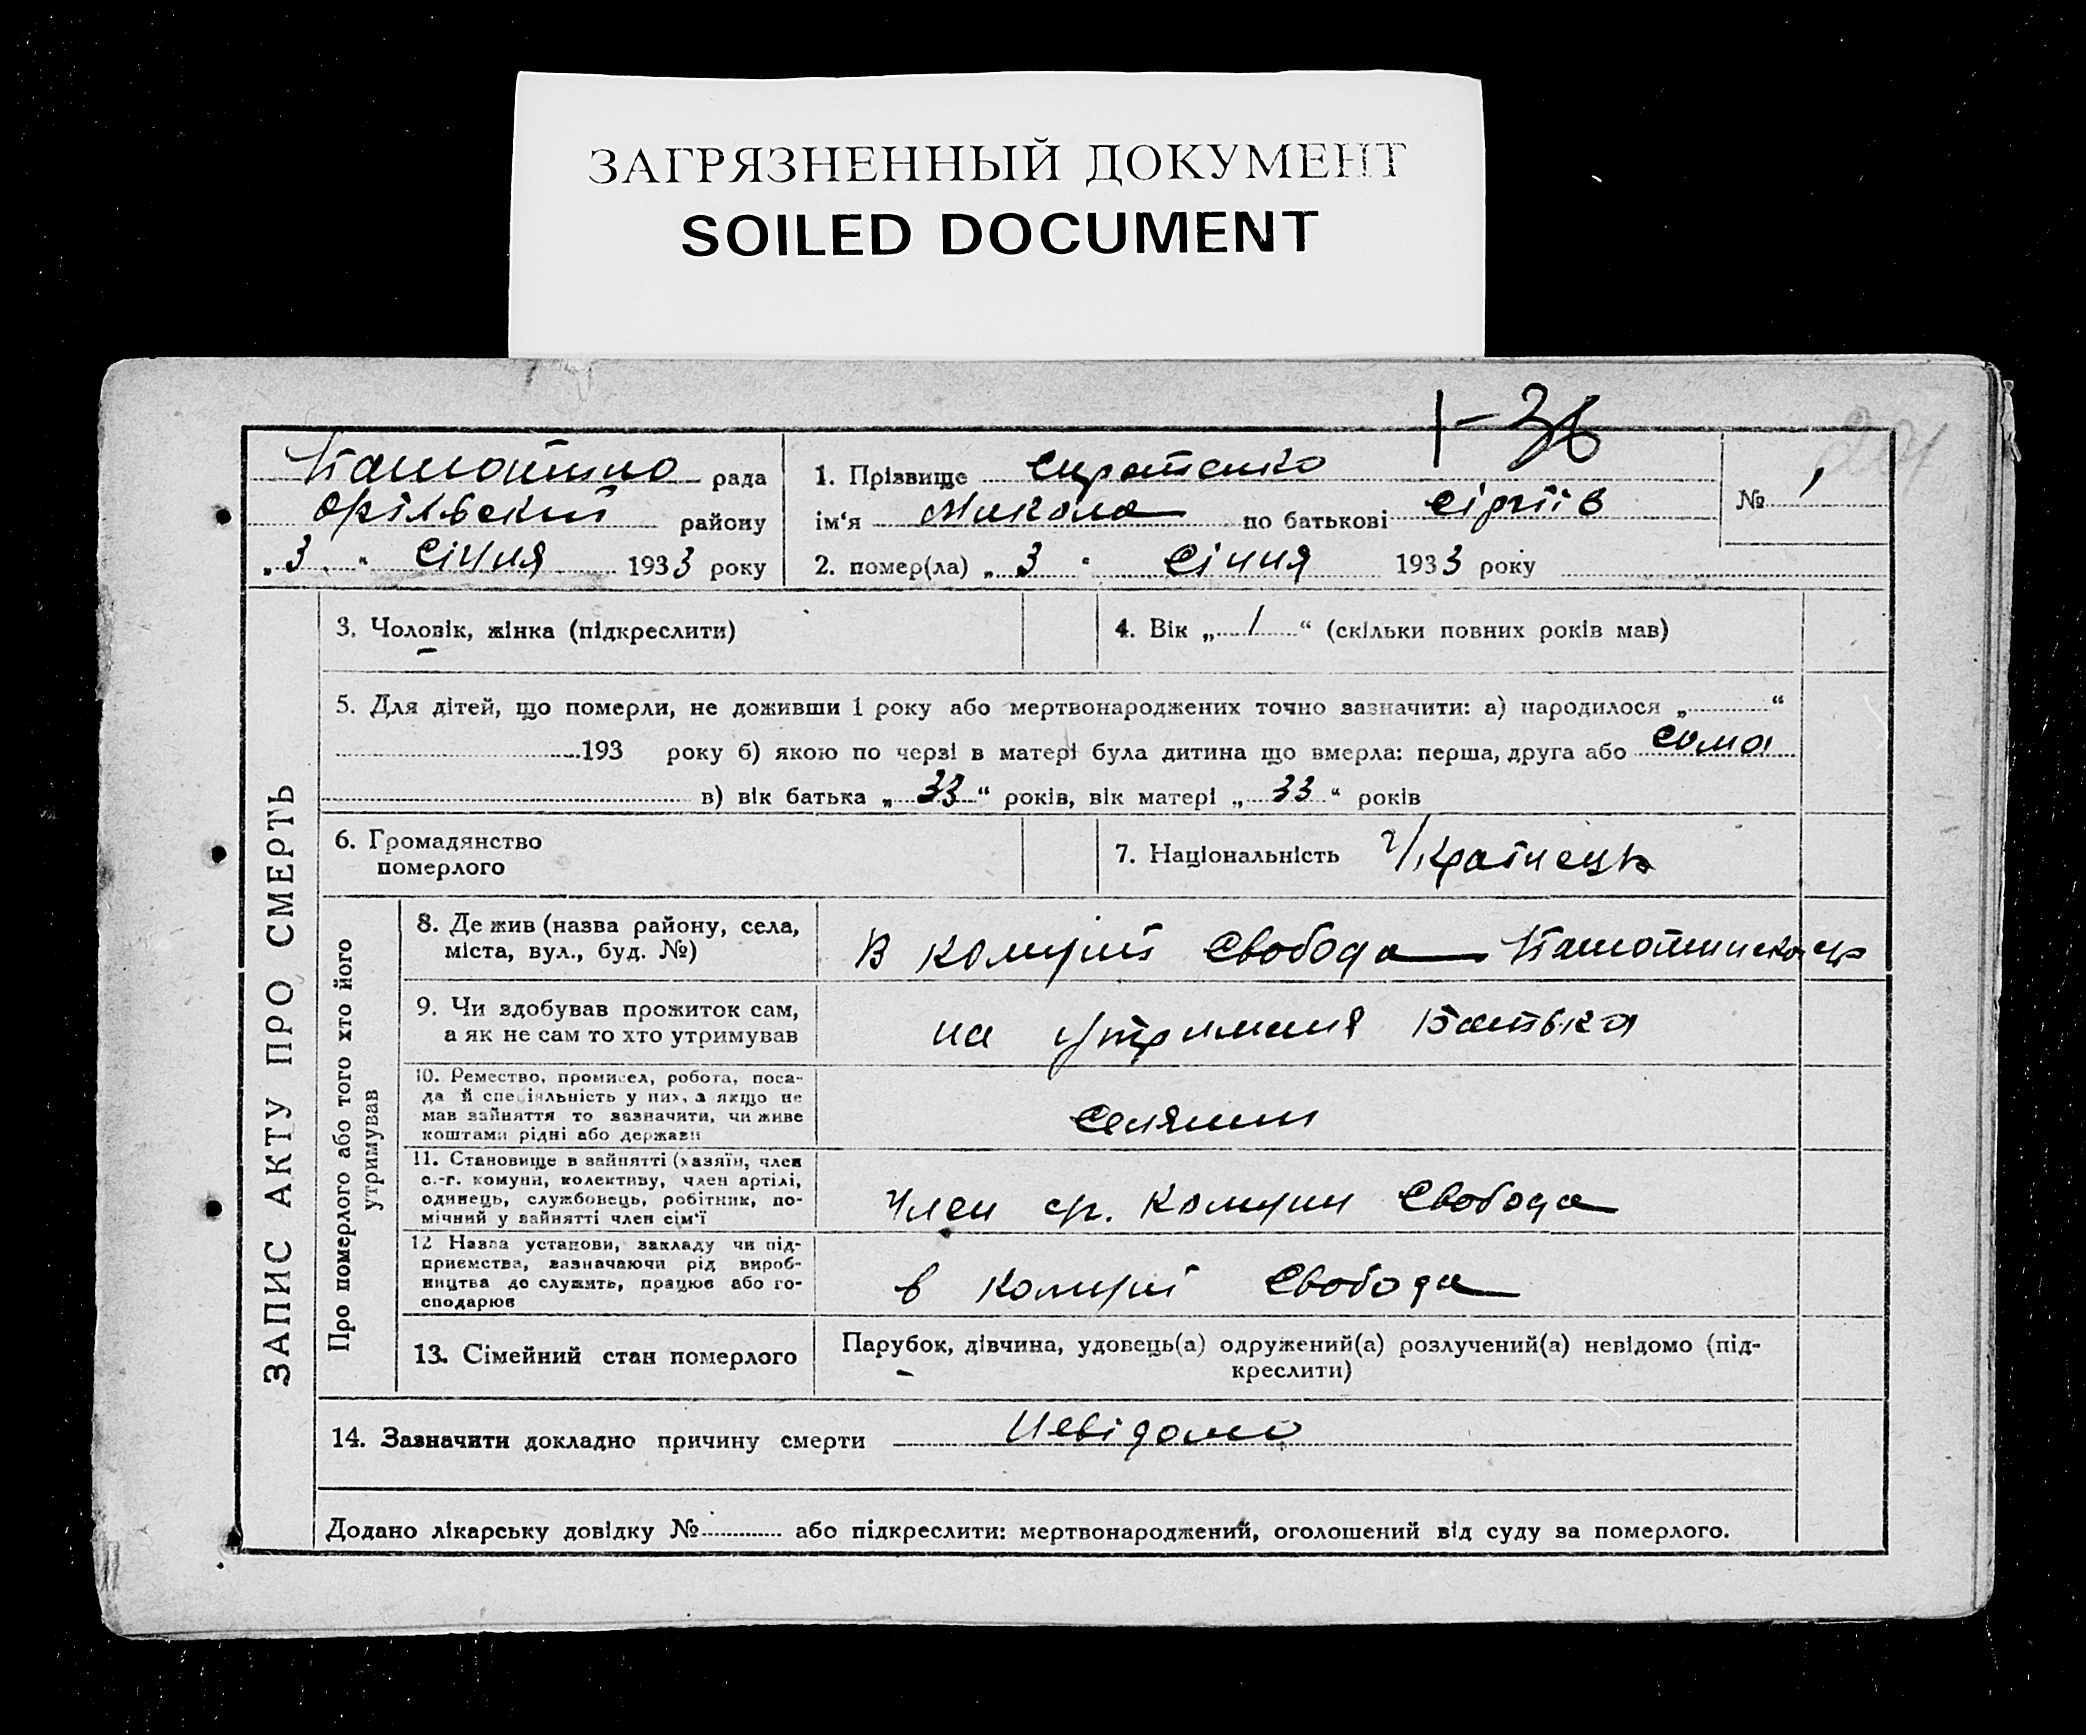 ЗАГРЯЗНЕННЫЙ ДОКУМЕНТ
SOILED DOCUMENT
рада
Орільський району
„3“ Січня 1933 року
1. Прізвище Сиротенко
ім'я Микола по батькові Сіргіїв
2. помер(ла) „3“ Січня 1933 року
№ 1
ЗАПИС АКТУ ПРО СМЕРТЬ
3. Чоловік, жінка (підкреслити)
4. Вік „1“ (скільки повних років мав)
5. Для дітей, що померли, не доживши 1 року або мертвонароджених точно зазначити: а) народилося „ “
193 року б) якою по черзі в матері була дитина що вмерла: перша, друга або сома
в) вік батька „33“ років, вік матері „33“ років
6. Громадянство
померлого
7. Національність Українець
Про померлого або того хто його
утримував
8. Де жив (назва району, села,
міста, вул., буд. №)
В комуні Свобода
9. Чи здобував прожиток сам,
а як не сам то хто утримував
на утриманя Батька
10. Ремество, промисел, робота, поса-
да й спеціяльність у них, а якщо не
мав зайняття то зазначити, чи живе
коштами рідні або держави
Селянин
11. Становище в зайнятті (хазяїн, член
с.-г. комуни, колективу, член артілі,
одинець, службовець, робітник, по-
мічний у зайнятті член сім'ї
Член ср. Комуни Свобода
12 Назва установи, закладу чи під-
приємства, зазначаючи рід вироб-
ництва де служить, працює або го-
сподарює
в Комуні Свобода
13. Сімейний стан померлого
Парубок, дівчина, удовець(а) одружений(а) розлучений(а) невідомо (під-
креслити)
14. Зазначити докладно причину смерти Невідомо
Додано лікарську довідку № або підкреслити: мертвонароджений, оголошений від суду за померлого.